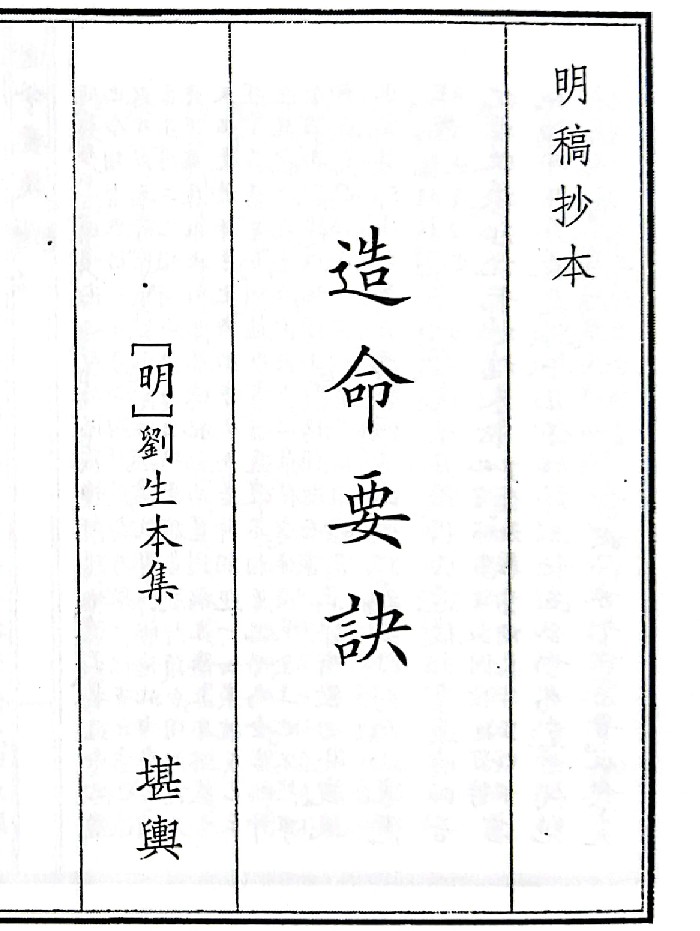 明稿抄本
造命要訣
[明]劉生本集
堪輿